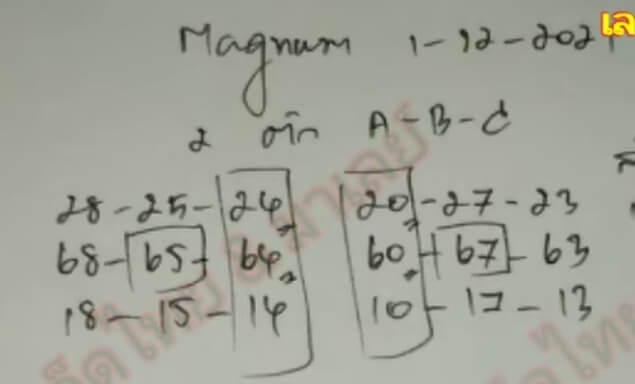 เล
Magnum 1-12-2021
2 ตัว A-B-C
28-25-24 20-27-23
68-65-64 60-67-63
18-15-14 10-17-13